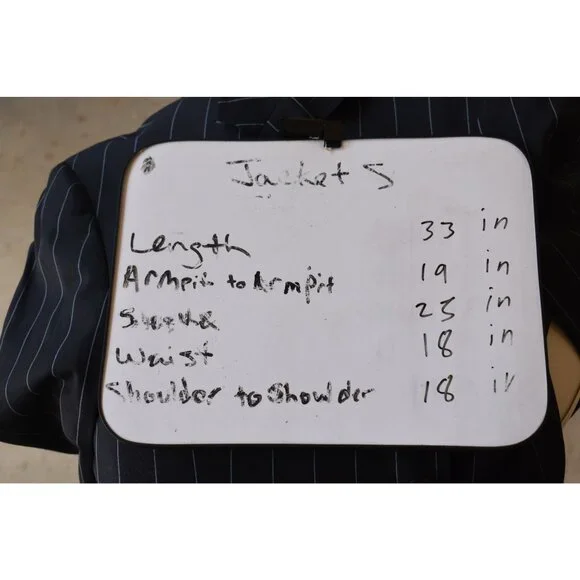 Jacket S
Length 33 in
Armpit to Armpit 19 in
Sleeve 25 in
Waist 18 in
Shoulder to Shoulder 18 in